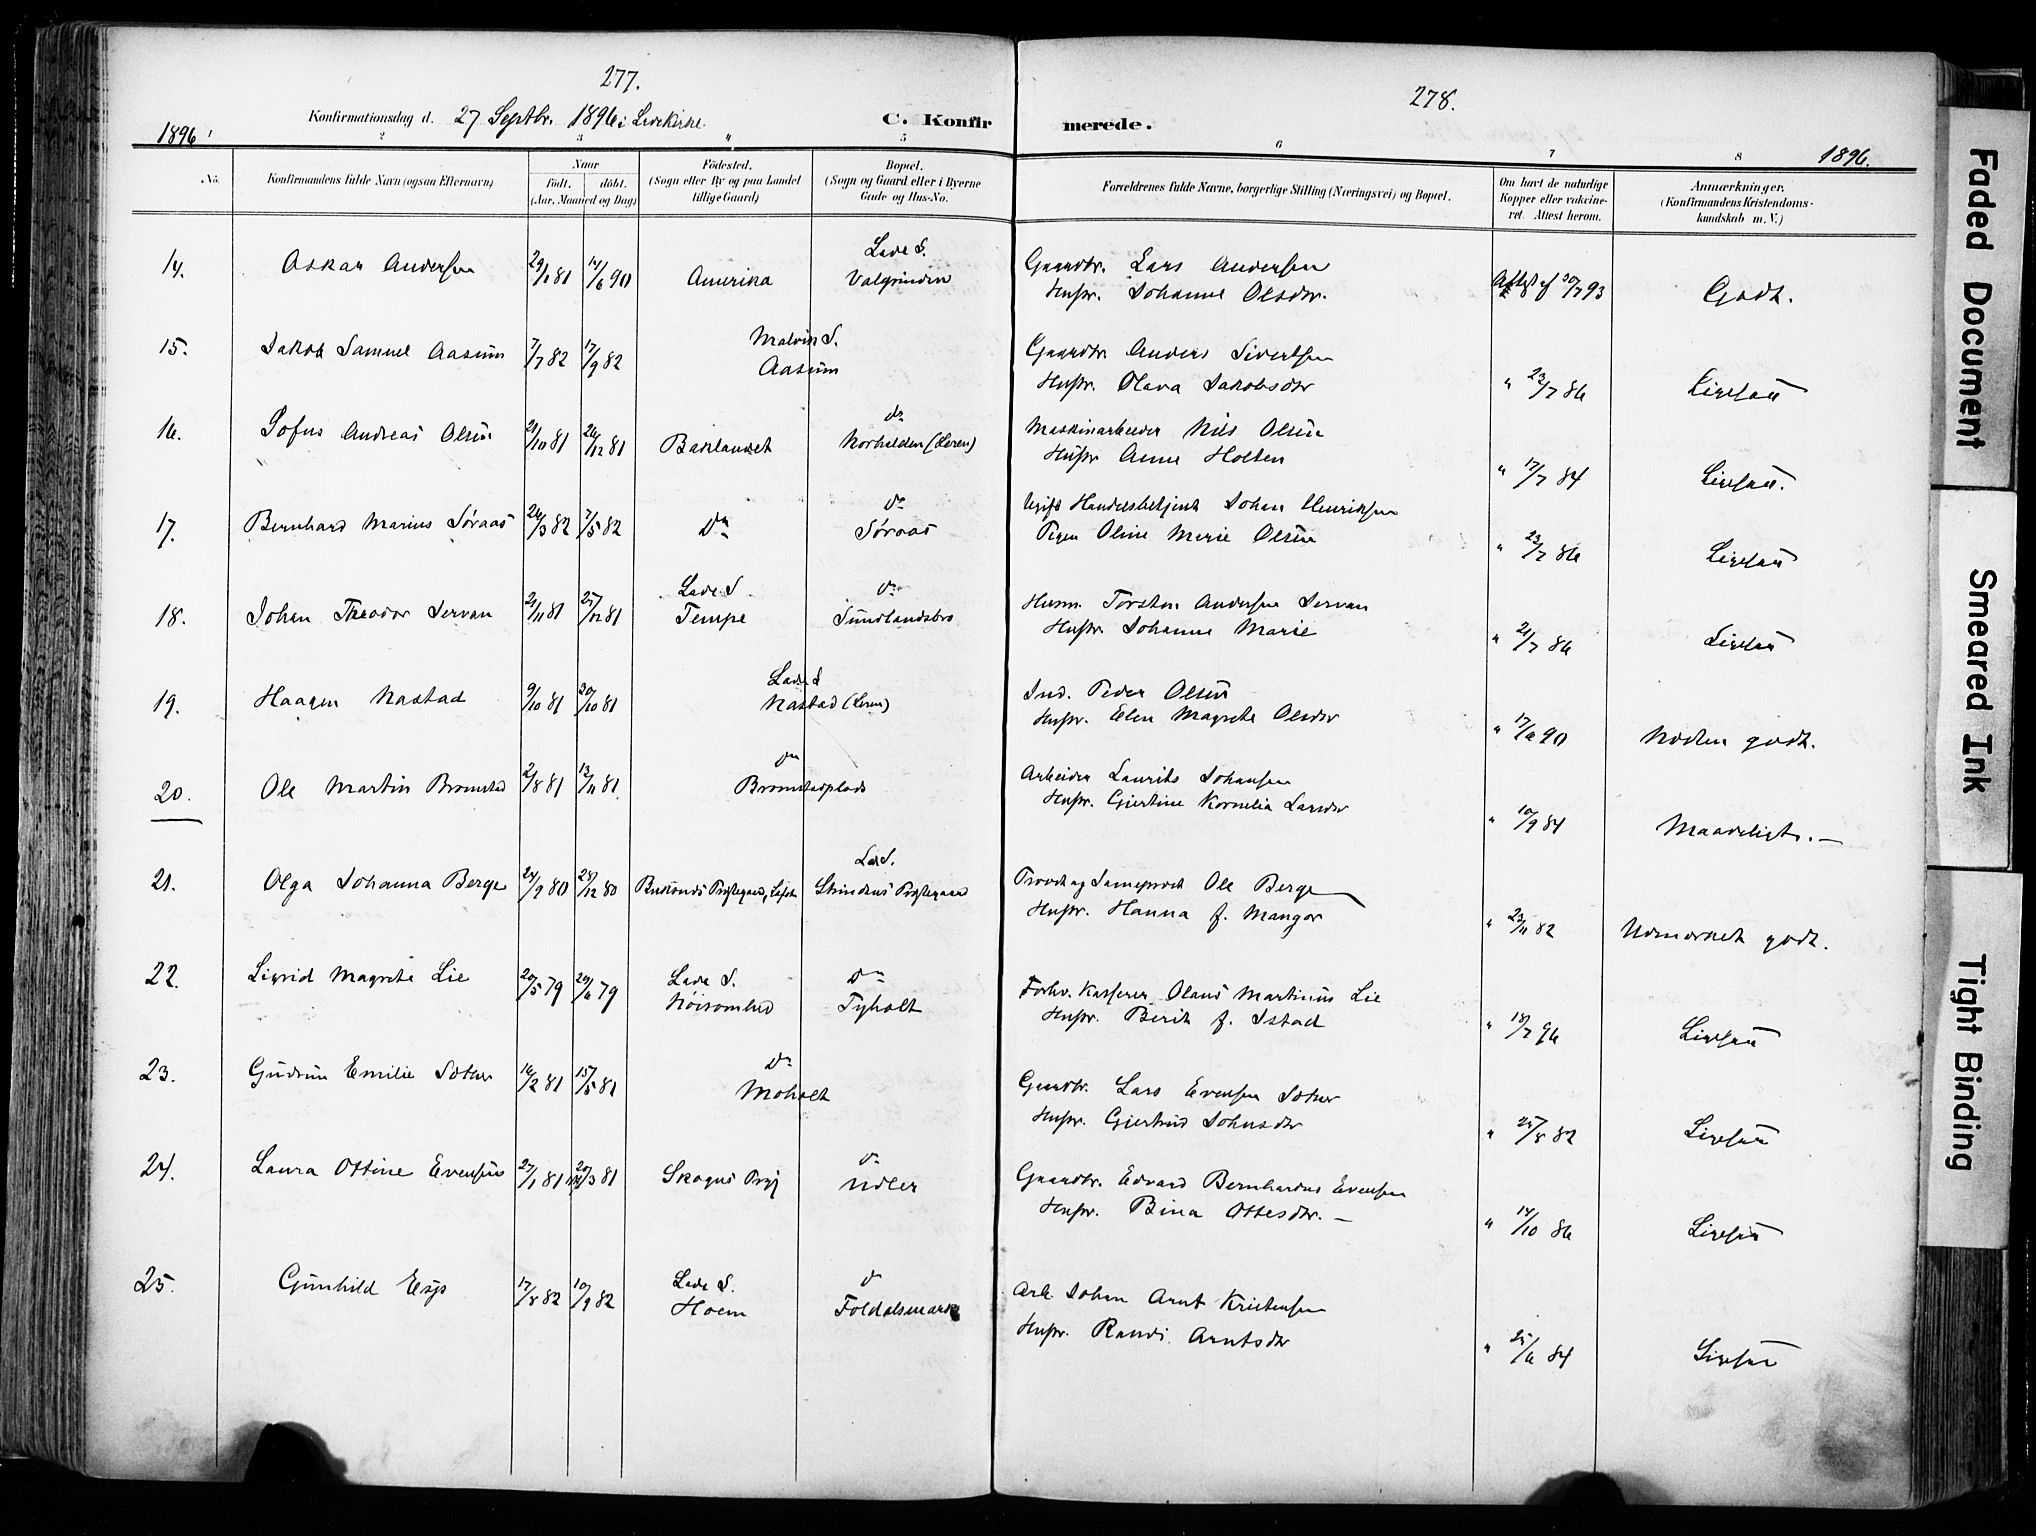 277.
278.
Konfirmationsdag d. 27 Septbr. 1896 i Ladekirke
C. Konfirmerede.
1896
1896.
1 2 3 4 5 6 7 8
No.
Konfirmandens fulde Navn (ogsaa Efternavn)
Naar
født. døbt.
(Aar, Maaned og Dag)
Fødested.
(Sogn eller By og paa Landet
tillige Gaard)
Bopæl.
(Sogn og Gaard eller i Byerne
Gade og Hus-No.
Forældrenes fulde Navne, borgerlige Stilling (Næringsvei) og Bopæl.
Om havt de naturlige
Kopper eller vakcine-
ret. Attest herom.
Anmærkninger.
(Konfirmandens Kristendoms-
kundskab m. V.)
14. Oskar Andersen 29/1 81 14/6 90 Amerika
Lade S.
Valgrinden
Gaardbr. Lars Andersen
Hustr. Johanne Olsdtr.
Attest af 30/7 93 Godt.
15. Jakob Samuel Aasum 7/7 82 17/9 82
Malvik S.
Aasum
Gaardbr. Anders Sivertsen
Hustr. Olava Jakobsdtr
" 23/7 86 Ligesaa
16. Sofus Andreas Olsen 21/10 81 26/12 81 Baklandet
do
Norhalden (Leren)
Maskinarbeider Nils Olsen
Hustr Anne Holten
" 17/7 84 Ligesaa.
17. Bernhard Marius Søraas 26/3 82 7/5 82 Do
do
Søraas
Ugift Handelsbetjent Johan Henriksen
Pigen Oline Marie Olsen
" 23/7 86 Ligesaa
18. Johan Theodor Servan 21/11 81 25/12 81
Lade S
Tempe
do
Sundlandsbro
Husm. Torsten Andersen Servan
Hustr. Johanne Marie
" 21/7 86 Ligesaa
19. Haagen Nastad 9/10 81 30/10 81
Lade S
Nastad (Leren)
Ind. Peder Olsen
Hustr. Elen Magrete Olsdtr
" 90 Næsten godt.
20. Ole Martin Bromstad 2/8 81 13/11 81
do
Bromstadplads
Arbeider Laurits Johansen
Hustr. Gjertine Kornelia Larsdtr
" 10/9 84 Maadeligt. —
21. Olga Johanna Berge 24/9 80 25/12 80 Buksnes Præstegaard,
Lade S.
Strindens Præstegaard
Provst og Sogneprest Ole Berge
Hustr. Hanna f. Mangor
" 23/11 82 Udmærket godt.
22. Sigrid Magrete Lie 20/5 79 29/6 79
Lade S.
Nøisomhed
do
Tyholt
Forhv. Kasserer Olaus Martinus Lie
Hustr. Berit f. Istad
" 18/7 96 Ligesaa
23. Gudrun Emilie Sæther 16/2 81 15/5 81
do
Moholt
Gaardbr. Lars Evensen Sæther
Hustr. Gjertrud Johnsdtr
" 25/8 82 Ligesaa
24. Laura Ottine Evensen 27/1 81 20/3 81 Skogns Prgj
do
Udler
Gaardbr. Edvard Bernhardus Evensen
Hustr. Bina Ottesdtr. —
" 14/10 86 Ligesaa
25. Gunhild Esp 17/8 82 10/9 82
Lade S.
Hoem
do
Foldalsmark
Arb. Johan Arnt Kristensen
Hustr. Randi Arntsdtr
" 25/6 84 Ligesaa
Faded Document
Smeared Ink
Tight Binding